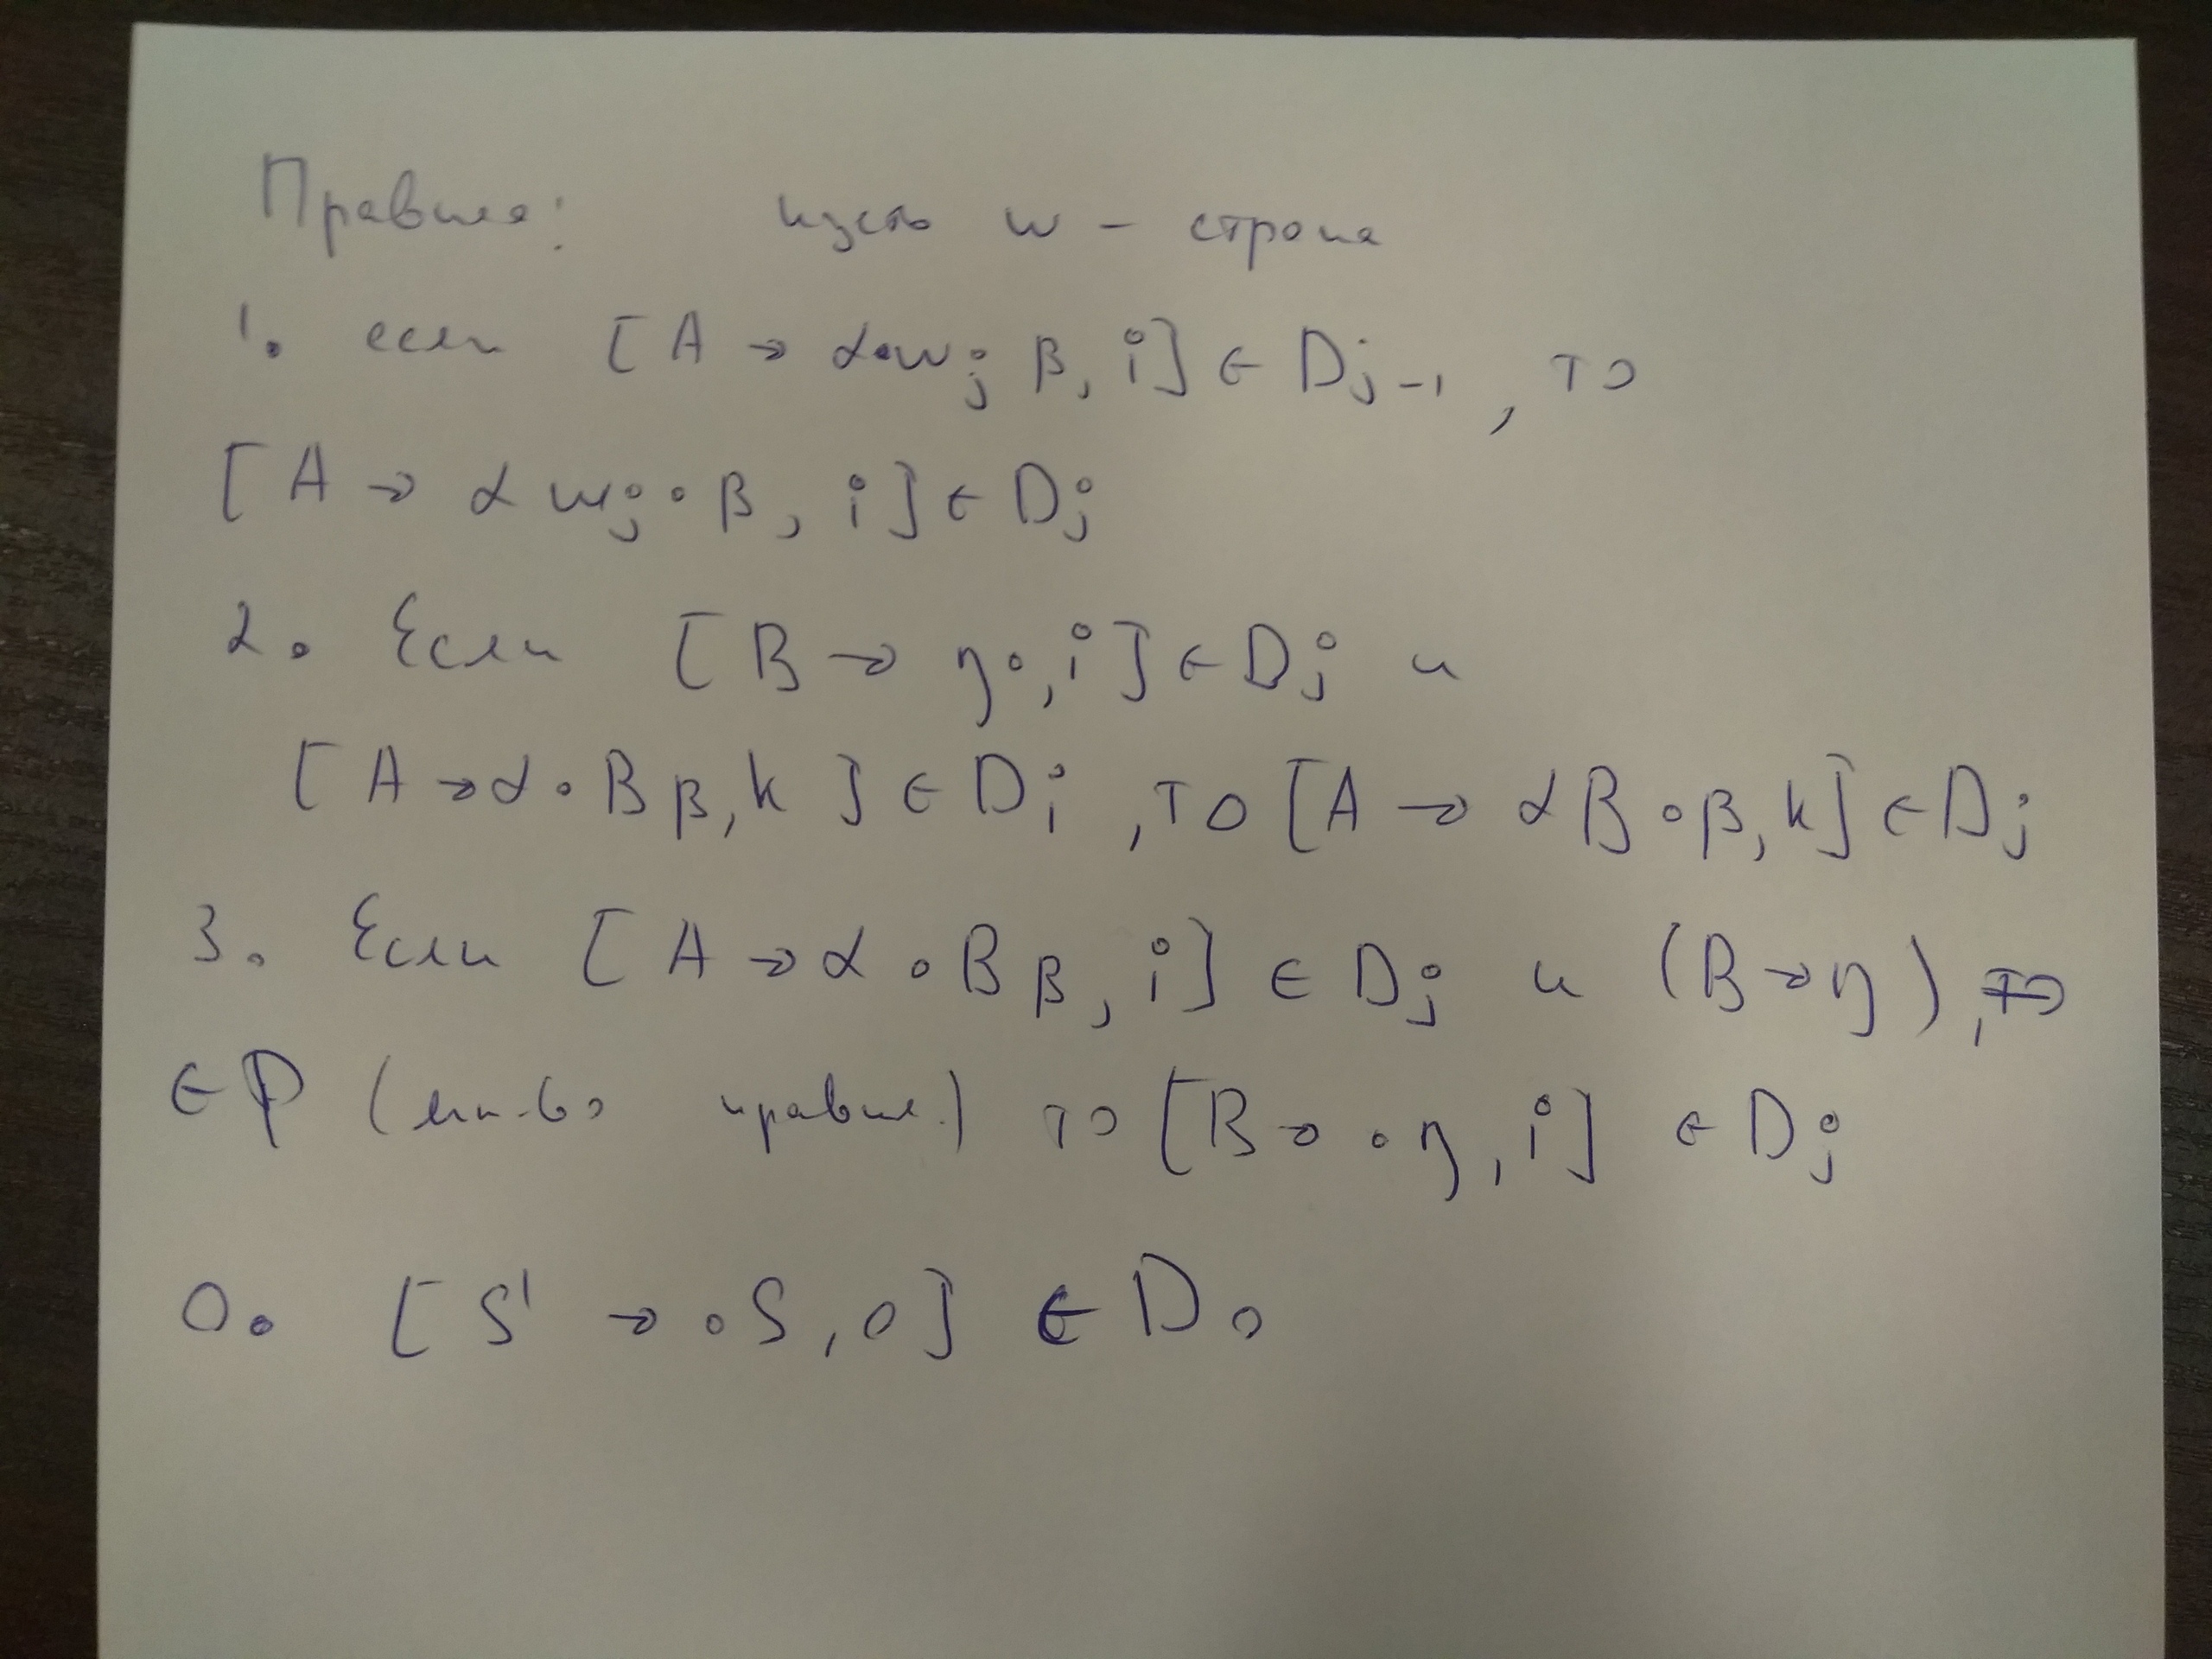 Правила: пусть w – строка
1. если [A → α•wⱼ β, i] ∈ Dⱼ₋₁, то
[A → α wⱼ • β, i] ∈ Dⱼ
2. Если [B → η•, i] ∈ Dⱼ и
[A → α • B β, k] ∈ Dᵢ, то [A → α B • β, k] ∈ Dⱼ
3. Если [A → α • B β, i] ∈ Dⱼ и (B → η), то
∈ P (мн-во правил) то [B → • η, i] ∈ Dⱼ
0. [S' → • S, 0] ∈ D₀